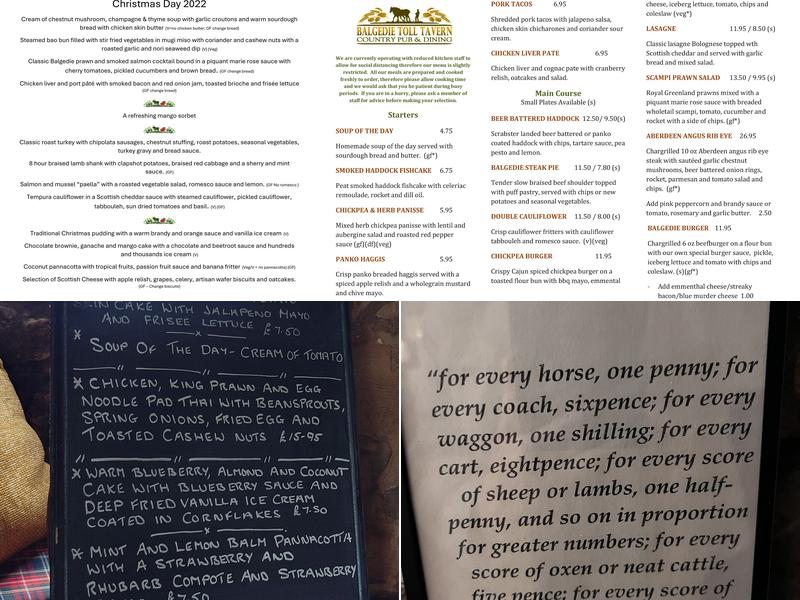 Christmas Day 2022
Cream of chestnut mushroom, champagne & thyme soup with garlic croutons and warm sourdough
bread with chicken skin butter (V=no chicken butter, GF change bread)
Steamed bao bun filled with stir fried vegetables in mugi miso with coriander and cashew nuts with a
roasted garlic and nori seaweed dip (V) (Veg)
Classic Balgedie prawn and smoked salmon cocktail bound in a piquant marie rose sauce with
cherry tomatoes, pickled cucumbers and brown bread. (GF change bread)
Chicken liver and port pâté with smoked bacon and red onion jam, toasted brioche and frisée lettuce
(GF change bread)
A refreshing mango sorbet
Classic roast turkey with chipolata sausages, chestnut stuffing, roast potatoes, seasonal vegetables,
turkey gravy and bread sauce.
8 hour braised lamb shank with clapshot potatoes, braised red cabbage and a sherry and mint
sauce. (GF)
Salmon and mussel "paella" with a roasted vegetable salad, romesco sauce and lemon. (GF No romesco )
Tempura cauliflower in a Scottish cheddar sauce with steamed cauliflower, pickled cauliflower,
tabbouleh, sun dried tomatoes and basil. (V) (GF)
Traditional Christmas pudding with a warm brandy and orange sauce and vanilla ice cream (V)
Chocolate brownie, ganache and mango cake with a chocolate and beetroot sauce and hundreds
and thousands ice cream (V)
Coconut pannacotta with tropical fruits, passion fruit sauce and banana fritter (Veg/V = no pannacotta) (GF)
Selection of Scottish Cheese with apple relish, grapes, celery, artisan wafer biscuits and oatcakes.
(GF – Change biscuits)
BALGEDIE TOLL TAVERN
COUNTRY PUB & DINING
We are currently operating with reduced kitchen staff to
allow for social distancing therefore our menu is slightly
restricted. All our meals are prepared and cooked
freshly to order, therefore please allow cooking time
and we would ask that you be patient during busy
periods. If you are in a hurry, please ask a member of
staff for advice before making your selection.
Starters
SOUP OF THE DAY 4.75
Homemade soup of the day served with
sourdough bread and butter. (gf*)
SMOKED HADDOCK FISHCAKE 6.75
Peat smoked haddock fishcake with celeriac
remoulade, rocket and dill oil.
CHICKPEA & HERB PANISSE 5.95
Mixed herb chickpea panisse with lentil and
aubergine salad and roasted red pepper
sauce (gf)(df)(veg)
PANKO HAGGIS 5.95
Crisp panko breaded haggis served with a
spiced apple relish and a wholegrain mustard
and chive mayo.
PORK TACOS 6.95
Shredded pork tacos with jalapeno salsa,
chicken skin chicharones and coriander sour
cream.
CHICKEN LIVER PATE 6.95
Chicken liver and cognac pate with cranberry
relish, oatcakes and salad.
Main Course
Small Plates Available (s)
BEER BATTERED HADDOCK 12.50/ 9.50(s)
Scrabster landed beer battered or panko
coated haddock with chips, tartare sauce, pea
pesto and lemon.
BALGEDIE STEAK PIE 11.50 / 7.80 (s)
Tender slow braised beef shoulder topped
with puff pastry, served with chips or new
potatoes and seasonal vegetables.
DOUBLE CAULIFLOWER 11.50 / 8.00 (s)
Crisp cauliflower fritters with cauliflower
tabbouleh and romesco sauce. (v)(veg)
CHICKPEA BURGER 11.95
Crispy Cajun spiced chickpea burger on a
toasted flour bun with bbq mayo, emmental
cheese, iceberg lettuce, tomato, chips and
coleslaw (veg*)
LASAGNE 11.95 / 8.50 (s)
Classic lasagne Bolognese topped with
Scottish cheddar and served with garlic
bread and mixed salad.
SCAMPI PRAWN SALAD 13.50 / 9.95 (s)
Royal Greenland prawns mixed with a
piquant marie rose sauce with breaded
wholetail scampi, tomato, cucumber and
rocket with a side of chips. (gf*)
ABERDEEN ANGUS RIB EYE 26.95
Chargrilled 10 oz Aberdeen angus rib eye
steak with sautéed garlic chestnut
mushrooms, beer battered onion rings,
rocket, parmesan and tomato salad and
chips. (gf*)
Add pink peppercorn and brandy sauce or
tomato, rosemary and garlic butter. 2.50
BALGEDIE BURGER 11.95
Chargrilled 6 oz beefburger on a flour bun
with our own special burger sauce, pickle,
iceberg lettuce and tomato with chips and
coleslaw. (s)(gf*)
- Add emmenthal cheese/streaky
bacon/blue murder cheese 1.00
CAKE WITH JALAPENO MAYO
AND FRISEE LETTUCE £7.50
* SOUP OF THE DAY - CREAM OF TOMATO
* CHICKEN, KING PRAWN AND EGG
NOODLE PAD THAI WITH BEANSPROUTS,
SPRING ONIONS, FRIED EGG AND
TOASTED CASHEW NUTS £15-95
* WARM BLUEBERRY, ALMOND AND COCONUT
CAKE WITH BLUEBERRY SAUCE AND
DEEP FRIED VANILLA ICE CREAM
COATED IN CORNFLAKES £7.50
* MINT AND LEMON BALM PANNACOTTA
WITH A STRAWBERRY AND
RHUBARB COMPOTE AND STRAWBERRY
£7.50
"for every horse, one penny; for
every coach, sixpence; for every
waggon, one shilling; for every
cart, eightpence; for every score
of sheep or lambs, one half-
penny, and so on in proportion
for greater numbers; for every
score of oxen or neat cattle,
five pence; for every score of